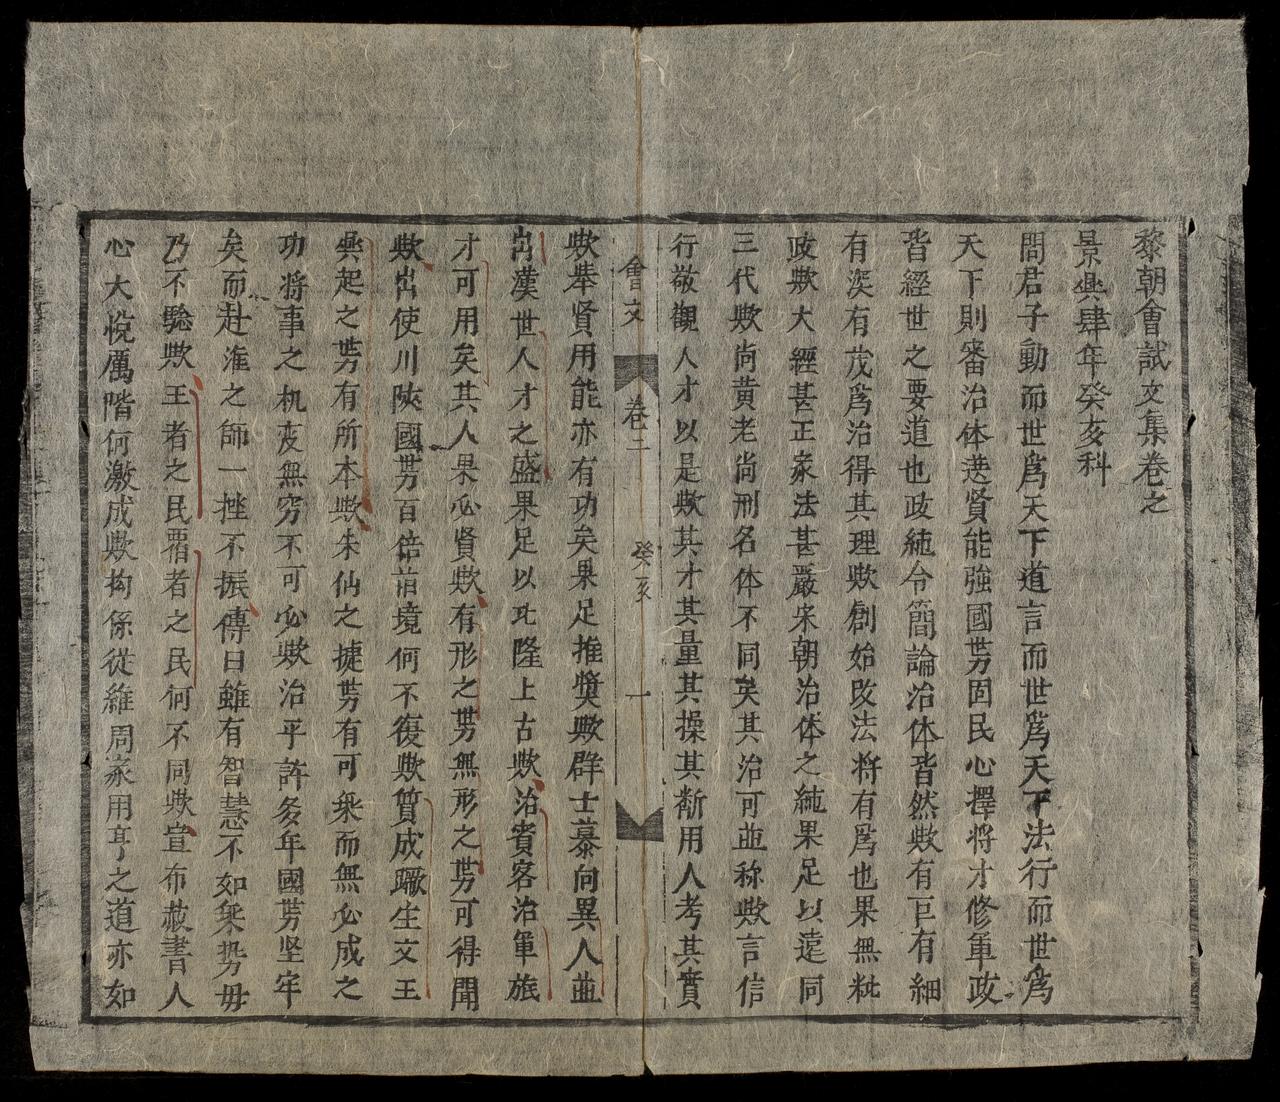 黎朝會試文集卷之
景興肆年癸亥科
問君子動而世爲天下道言而世爲天下法行而世爲
天下則審治体选賢能強國势固民心擇將才修軍政
皆經世之要道也政純令簡論治体皆然欤有巨有細
有深有茂爲治得其理欤創始改法将有爲也果無粃
政欤大經甚正家法甚嚴宋朝治体之純果足以遠同
三代欤尚黄老尚刑名体不同矣其治可並称欤言信
行敬觀人才以是欤其才其量其操其断用人考其實
會文 卷二 癸亥 一
欤举賢用能亦有功矣果足推獎欤群士慕向異人並
出漢世人才之盛果足以比隆上古欤治賓客治軍旅
才可用矣其人果必賢欤有形之势無形之势可得聞
欤出使川陝國势百倍旧境何不復欤質成蹶生文王
興起之势有所本欤朱仙之捷势有可乘而無必成之
功将事之机变無穷不可必欤治平許多年國势坚牢
矣而赴淮之師一挫不振傳曰雖有智慧不如乘势毋
乃不騐欤王者之民覇者之民何不同欤宣布赦書人
心大悅厲階何激成欤拘係從維周家用亨之道亦如